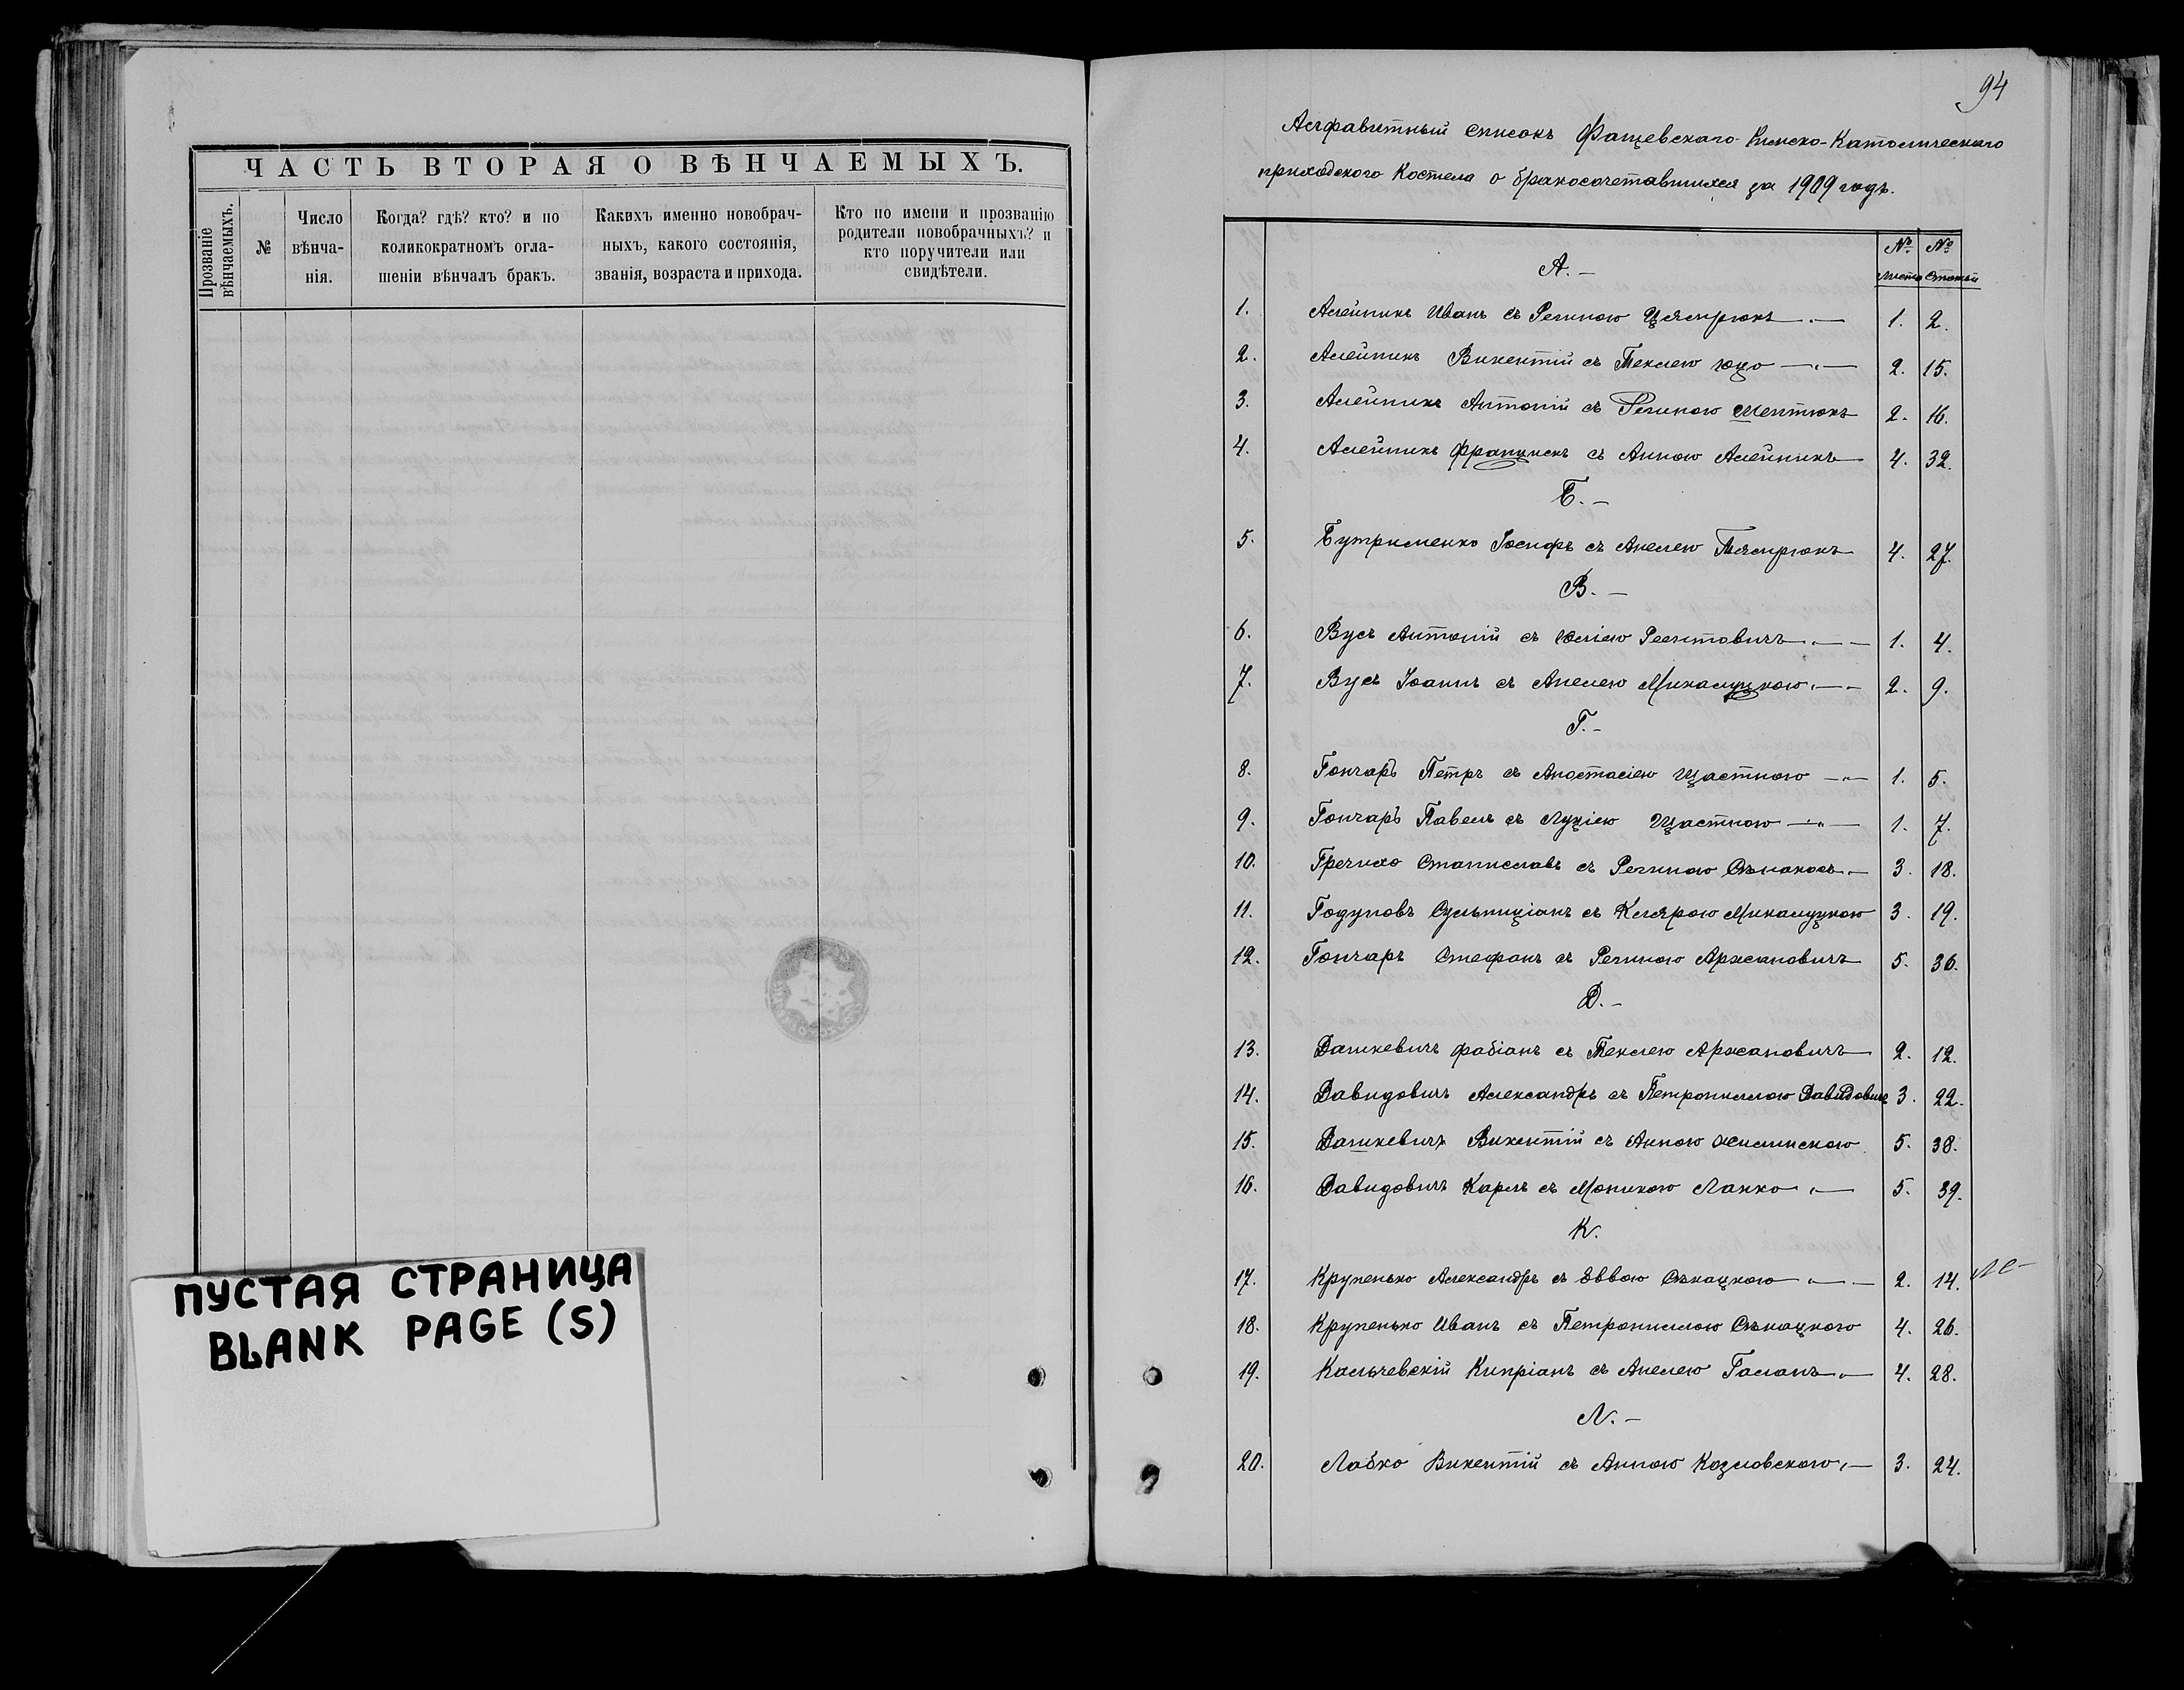 ЧАСТЬ ВТОРАЯ О ВѢНЧАЕМЫХЪ.
Прозваніе вѣнчаемыхъ.
№
Число вѣнча-
нія.
Когда? гдѣ? кто? и по
коликократномъ огла-
шеніи вѣнчалъ бракъ.
Какихъ именно новобрач-
ныхъ, какого состоянія,
званія, возраста и прихода.
Кто по имени и прозванію
родители новобрачныхъ? и
кто поручители или
свидѣтели.
ПУСТАЯ СТРАНИЦА
BLANK PAGE (S)
94
Алфавитный списокъ Фащевскаго Римско-Католическаго
приходскаго Костела о бракосочетавшихся за 1909 годъ.
№ листа № статьи
А. –
1. Алейникъ Иванъ съ Региною 1. 2.
2. Алейникъ Викентій съ Теклею Юцо 2. 15.
3. Алейникъ Антоній съ Региною Шептюкъ 2. 16.
4. Алейникъ Францискъ съ Анною Алейникъ 4. 32.
Б. –
5. Бутрименко Іосифъ съ Анелею 4. 27.
В. –
6. Вусъ Антоній съ Юліею 1. 4.
7. Вусъ Іоаннъ съ Анелею Микалуцкою 2. 9.
Г. –
8. Гончаръ Петръ съ Анастасіею Щастною 1. 5.
9. Гончаръ Павелъ съ Луціею Щастною 1. 7.
10. Гречихо Станиславъ съ Региною 3. 18.
11. Годуновъ Сульпиціанъ съ Клярою Микалуцкою 3. 19.
12. Гончаръ Стефанъ съ Региною Аржановичъ 5. 36.
Д. –
13. Дашкевичъ Фабіанъ съ Теклею Аржановичъ 2. 12.
14. Давидовичъ Александръ съ Петронилою Давидовичъ 3. 22.
15. Дашкевичъ Викентій съ Анною Жилинскою 5. 38.
16. Давидовичъ Карлъ съ Моникою Лапко 5. 39.
К.
17. Крупенько Александръ съ Еввою Сѣкацкою 2. 14.
18. Крупенько Иванъ съ Петронилою Сѣкацкою 4. 26.
19. Кальчевскій Кипріанъ съ Анелею Галанъ 4. 28.
Л. –
20. Лабко Викентій съ Анною Козловскою 3. 24.